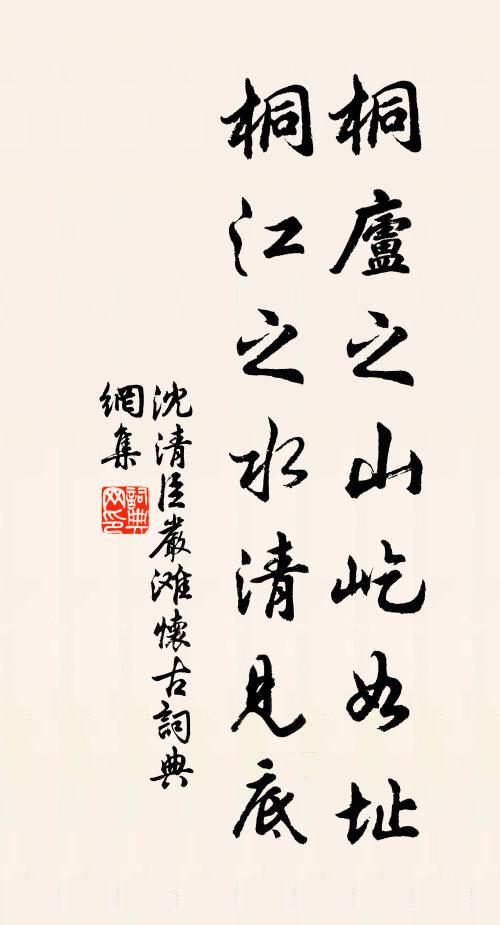 桐廬之山屹如址
桐江之水清見底
沈清臣嚴滩懷古詞典
網集
詞典
网印